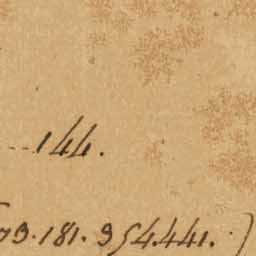 144.
3.181.954.441.)